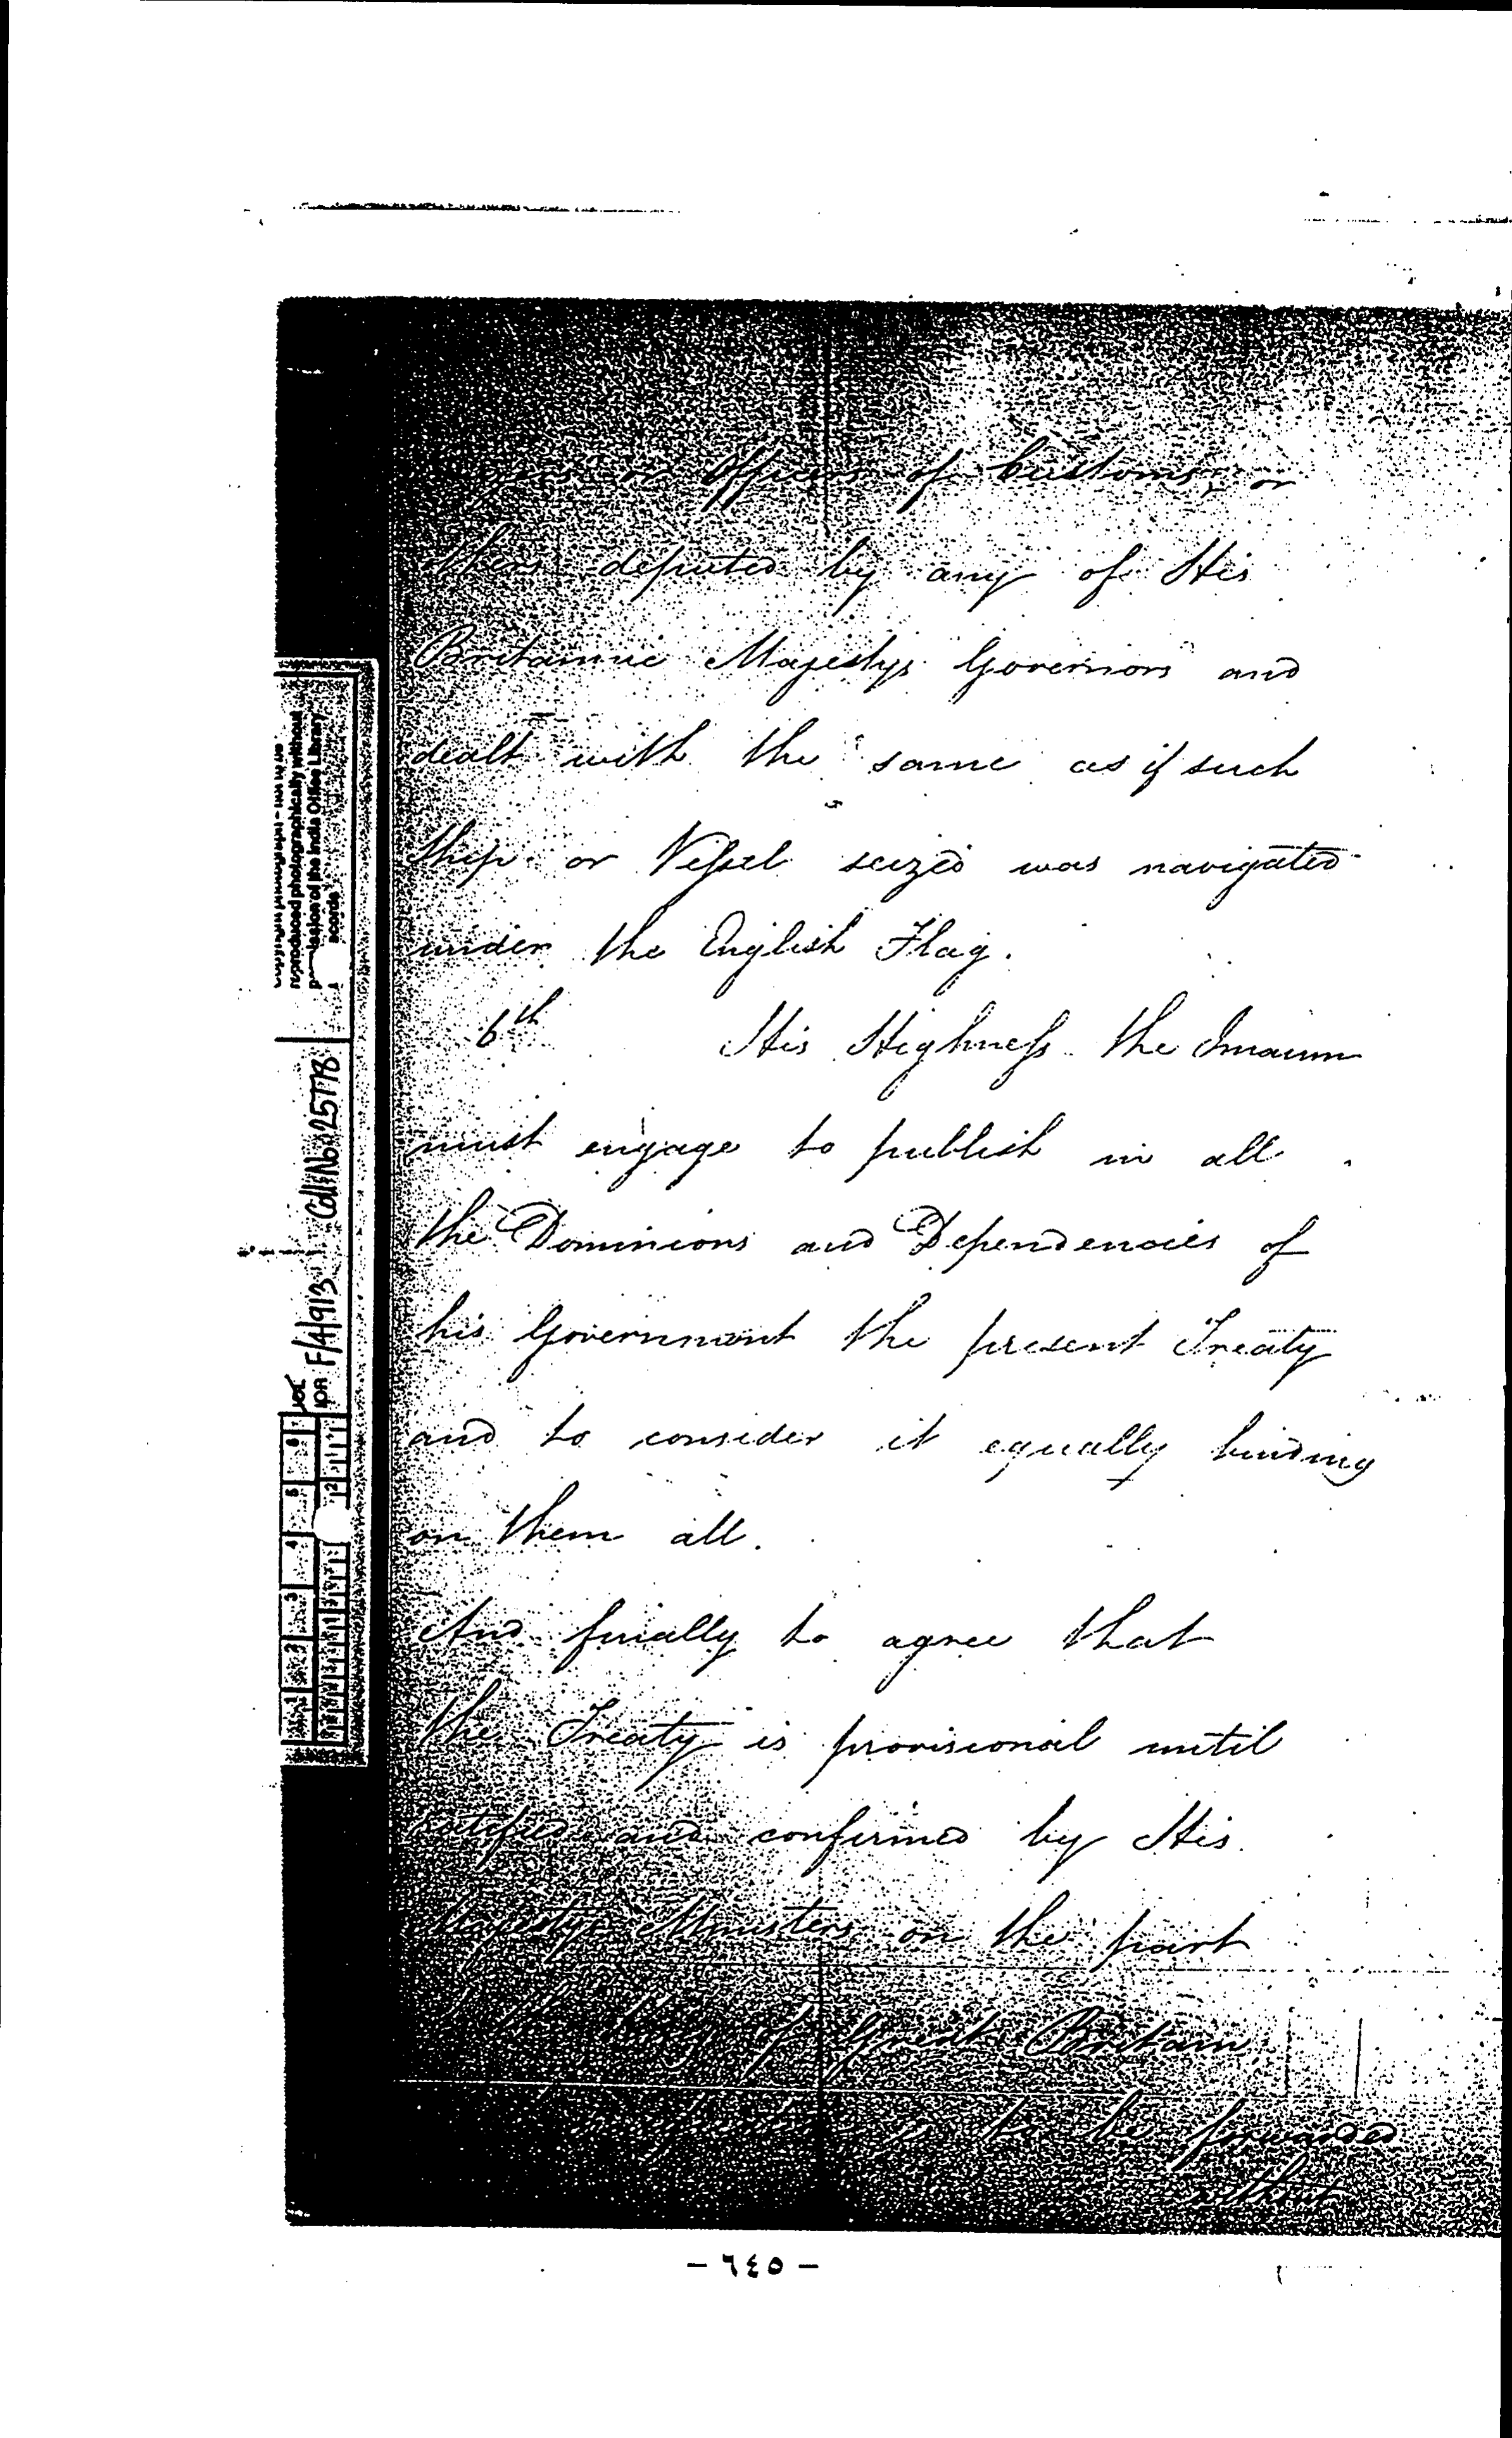 or Officers of Customs, or
others deputed by any of His
Britannic Majestys Governors and
dealt with the same as if such
Ship or Vessel seized was navigated
under the English Flag.
6th His Highness the Imaum
must engage to publish in all
the Dominions and Dependencies of
his Government the present Treaty
and to consider it equally binding
on them all.
And finally to agree that
the Treaty is provisional until
ratified and confirmed by His
Majestys Ministers on the part
King of Great Britain
is to be forwarded
without
reproduced photographically without
permission of the India Office Library
IOR F/4/913 Coll: No: 25778
1 2 3 4 5 6
- ٦٤٥ -